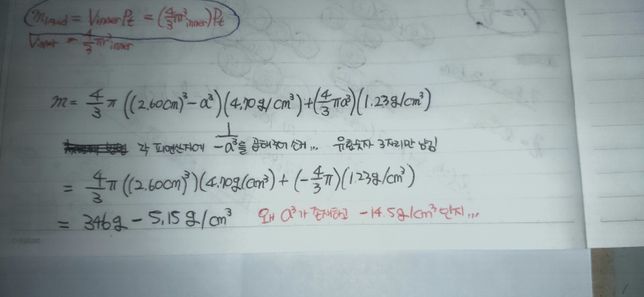 m_liquid = V_inner ρ_t = (4/3 πr³_inner) ρ_t
V_inner = 4/3 πr³_inner
m = 4/3 π ((2.60cm)³ - a³)(4.70g/cm³) + (4/3 πa³)(1.23g/cm³)
각 피연산자에 1/-a³을 곱해주어 유효숫자 3자리만 남김
= 4/3 π ((2.60cm)³)(4.70g/cm³) + (-4/3 π)(1.23g/cm³)
= 346g - 5.15g/cm³ 왜 a³가 존재하고 -14.5g/cm³ 인지...